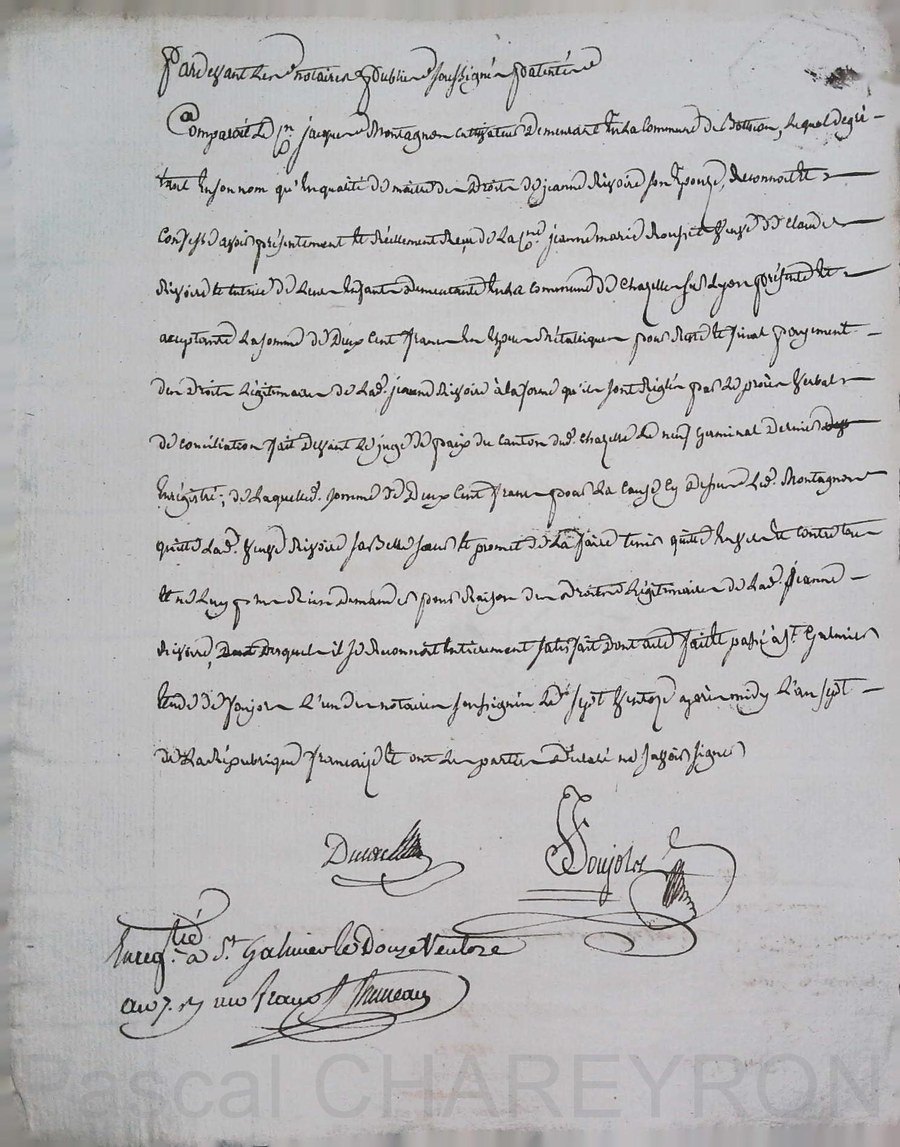 Pardevant Les notaires Publics soussignés patentés
Comparoit Le Cen jacques Montagnon cultivateur demeurant En La Commune de Boisson, Lequel degré
tant En son nom qu'En qualité de maitre des Droits de jeanne Rivoire son Epouse, Reconnoit Et
Confesse avoir présentement Et Réellement Reçu de La Cne jeanne marie Veuve de Claude
Rivoire Et tutrice de Leurs Enfants demeurante En La Commune de Chazelles sur Lyon présente Et
acceptante La somme de Deux Cent francs En Espèces métalliques pour Reste Et final payement
des Droits Légitimaires de Lad. jeanne Rivoire à la forme qu'ils sont Réglés par Le procès Verbal
de conciliation fait devant Le juge de paix du Canton dud. Chazelles Le neuf Germinal Dernier
Enrégistré; de Laquelle d. somme de Deux Cent francs pour La Cause Cy dessus Led. Montagnon
quitte Lad. Veuve Rivoire sa Belle soeur Et promet de La faire tenir quitte Envers Et Contre tous
Et ne Luy Rien Demander pour Raison des Droits Légitimaires de Lad. Jeanne
Rivoire, Desquels il se Reconnoit Entierement satisfait dont acte fait Et passé à St. Galmier
Etude de Poujon L'un des notaires soussignés Le sept Ventose après midy L'an sept
de La République française Et ont Les parties déclaré ne savoir signer
Enregtré à St Galmier le Douze Ventose
an 7. un franc
Pascal CHAREYRON